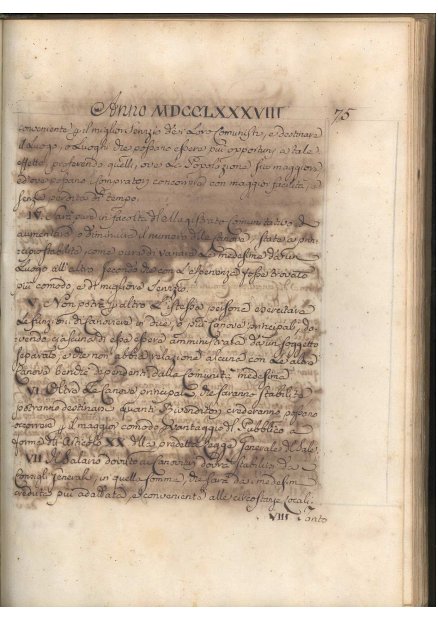 Anno MDCCLXXXVIII 75
conveniente p il miglior servizio dei Loro Comunisti, e destinare
il luogo, o Luoghi che possano essere più opportuni a tale
effetto, preferendo quelli, ove la Popolazione sia maggiore
ed ove possano i Compratori concorrere con maggior facilità, e
senza perdita di tempo.
IV. e Sarà pure in facoltà del Magistrato Comunitativo di
aumentare o diminuire il numero delle Canove, state a prin-
cipio stabilite come pure di variare le medesime da un
Luogo all'altro secondo che con l'esperienza fosse trovato
più comodo, e di migliore servizio.
V. e Non potrà p altro l'istessa persona esercitare
le funzioni di Canoviere in due, o più Canove principali, do-
vendo ciascuna di esse essere amministrata da un soggetto
separato, e che non abbia relazione alcuna con le altre
Canove bensì dipendenti dalla Comunità medesima
VI. Oltre le Canove principali, che saranno stabilite
potranno destinare quanti Rivenditori crederanno possano
occorrere p il maggior comodo, e vantaggio del Pubblico a
forma dell Articolo XX della predetta Legge Generale del Sale.
VII. Il Salario dovuto ai Canovieri dovrà stabilirsi da
Consigli Generali, in quella somma, che sarà da medesimi
creduta più adattata, e conveniente alle circostanze Locali.
VIII. Tanto